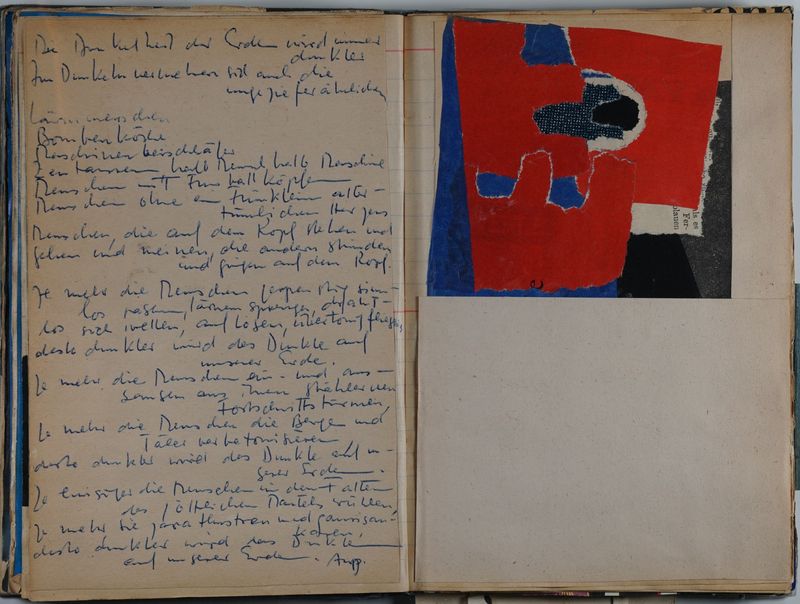 Die Dunkelheit der Erde wird immer
dunkler
Im Dunkeln vermehren sich auch die
ungezieferähnlichen
Lärmmenschen
Bombenköpfe
Maschinenbeischläfer
Zentauren halb Mensch halb Maschine
Menschen mit Fussballköpfen
Menschen ohne ein Fünklein alter-
tümlichen Herzens
Menschen, die auf dem Kopf stehen und
gehen und meinen, die andern stünden
und gingen auf dem Kopf.
Je mehr die Menschen sinn-
los rasen, lärmen,
los sich wellen, auflösen,
desto dunkler wird das Dunkle auf
unserer Erde.
Je mehr die Menschen ein- und aus-
gehen aus ihren stählernen
Fortschrittstürmen,
Je mehr die Menschen die Berge und
Täler verbetonisieren
desto dunkler wird das Dunkle auf un-
serer Erde.
Je die Menschen in den Falten
des göttlichen Mantels wühlen,
Je mehr sie und
desto dunkler wird das Dunkle
auf unserer Erde. Arp.
ls es
Fer-
blauen